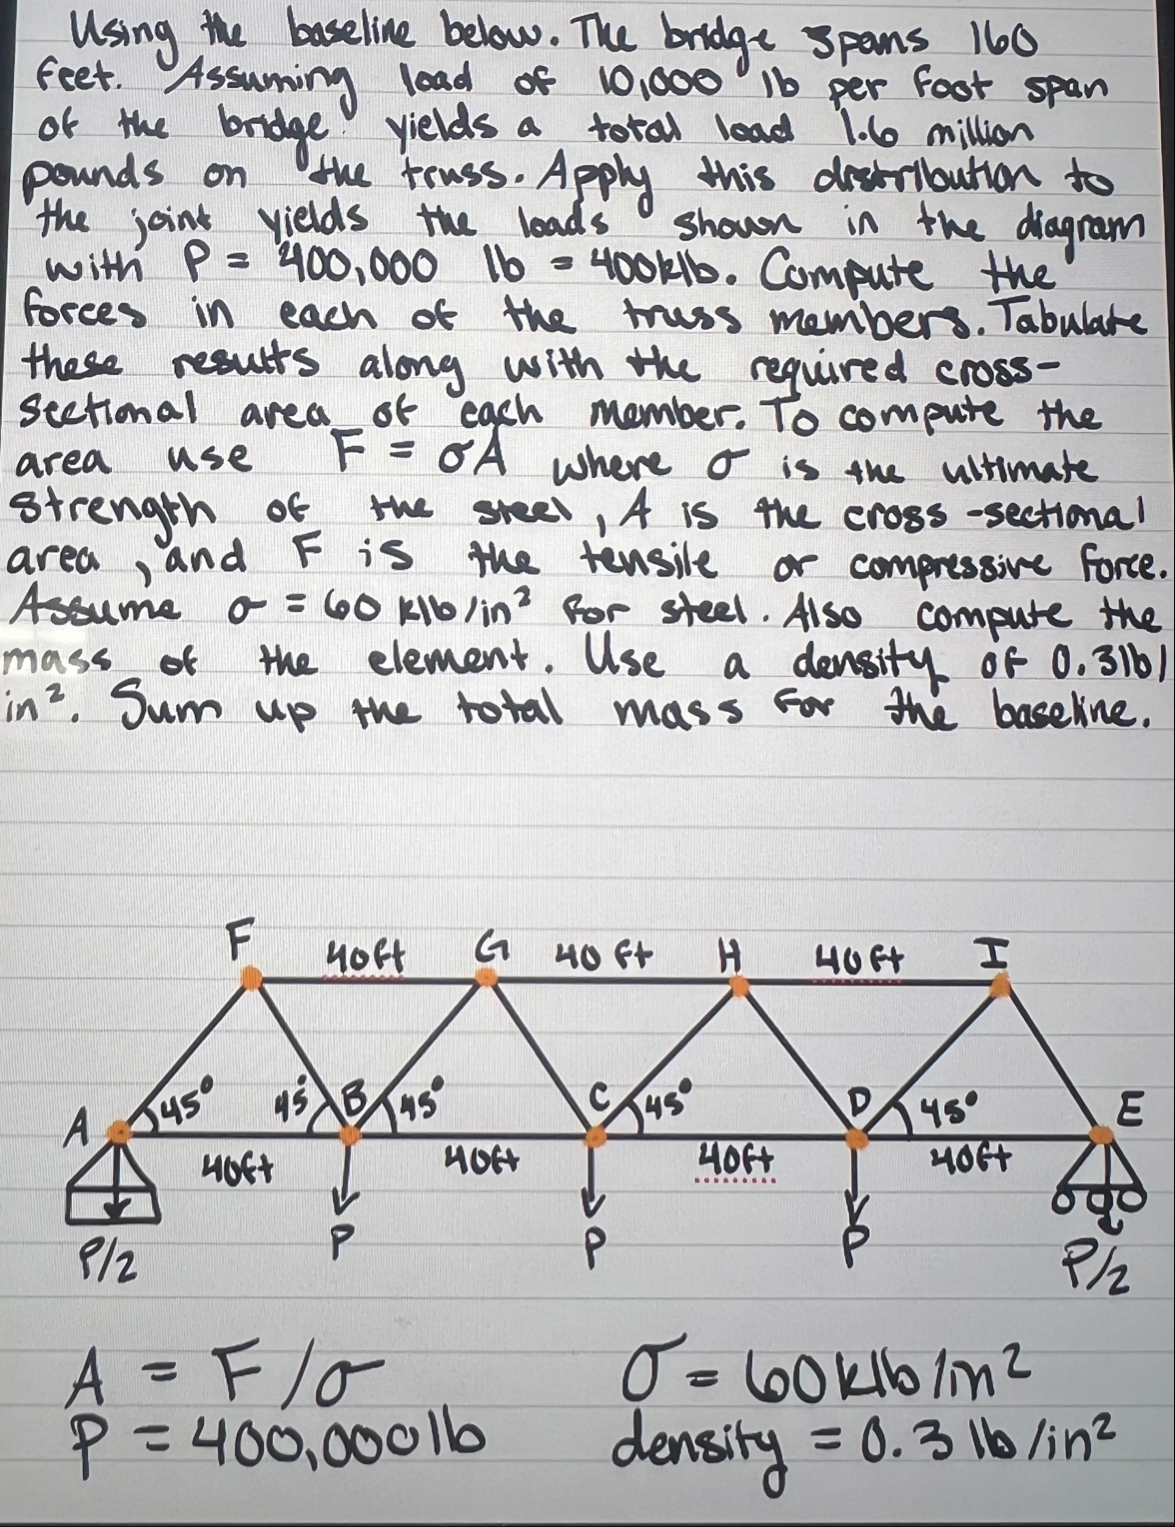 Using the baseline below. The bridge spans 160
feet. Assuming load of 10,000 lb per foot span
of the bridge yields a total load 1.6 million
pounds on the truss. Apply this distribution to
the joint yields the loads shown in the diagram
with P = 400,000 lb = 400klb. Compute the
forces in each of the truss members. Tabulate
these results along with the required cross-
sectional area of each member. To compute the
area use F = σA where σ is the ultimate
strength of the steel, A is the cross-sectional
area, and F is the tensile or compressive force.
Assume σ = 60 klb/in² for steel. Also compute the
mass of the element. Use a density of 0.3 lb/
in². Sum up the total mass for the baseline.
F 40ft G 40 ft H 40ft I
A 45° 45° B 45° C 45° D 45° E
40ft 40ft 40ft 40ft
P/2 P P P P/2
A = F/σ σ = 60 klb/in²
P = 400,000lb density = 0.3 lb/in²